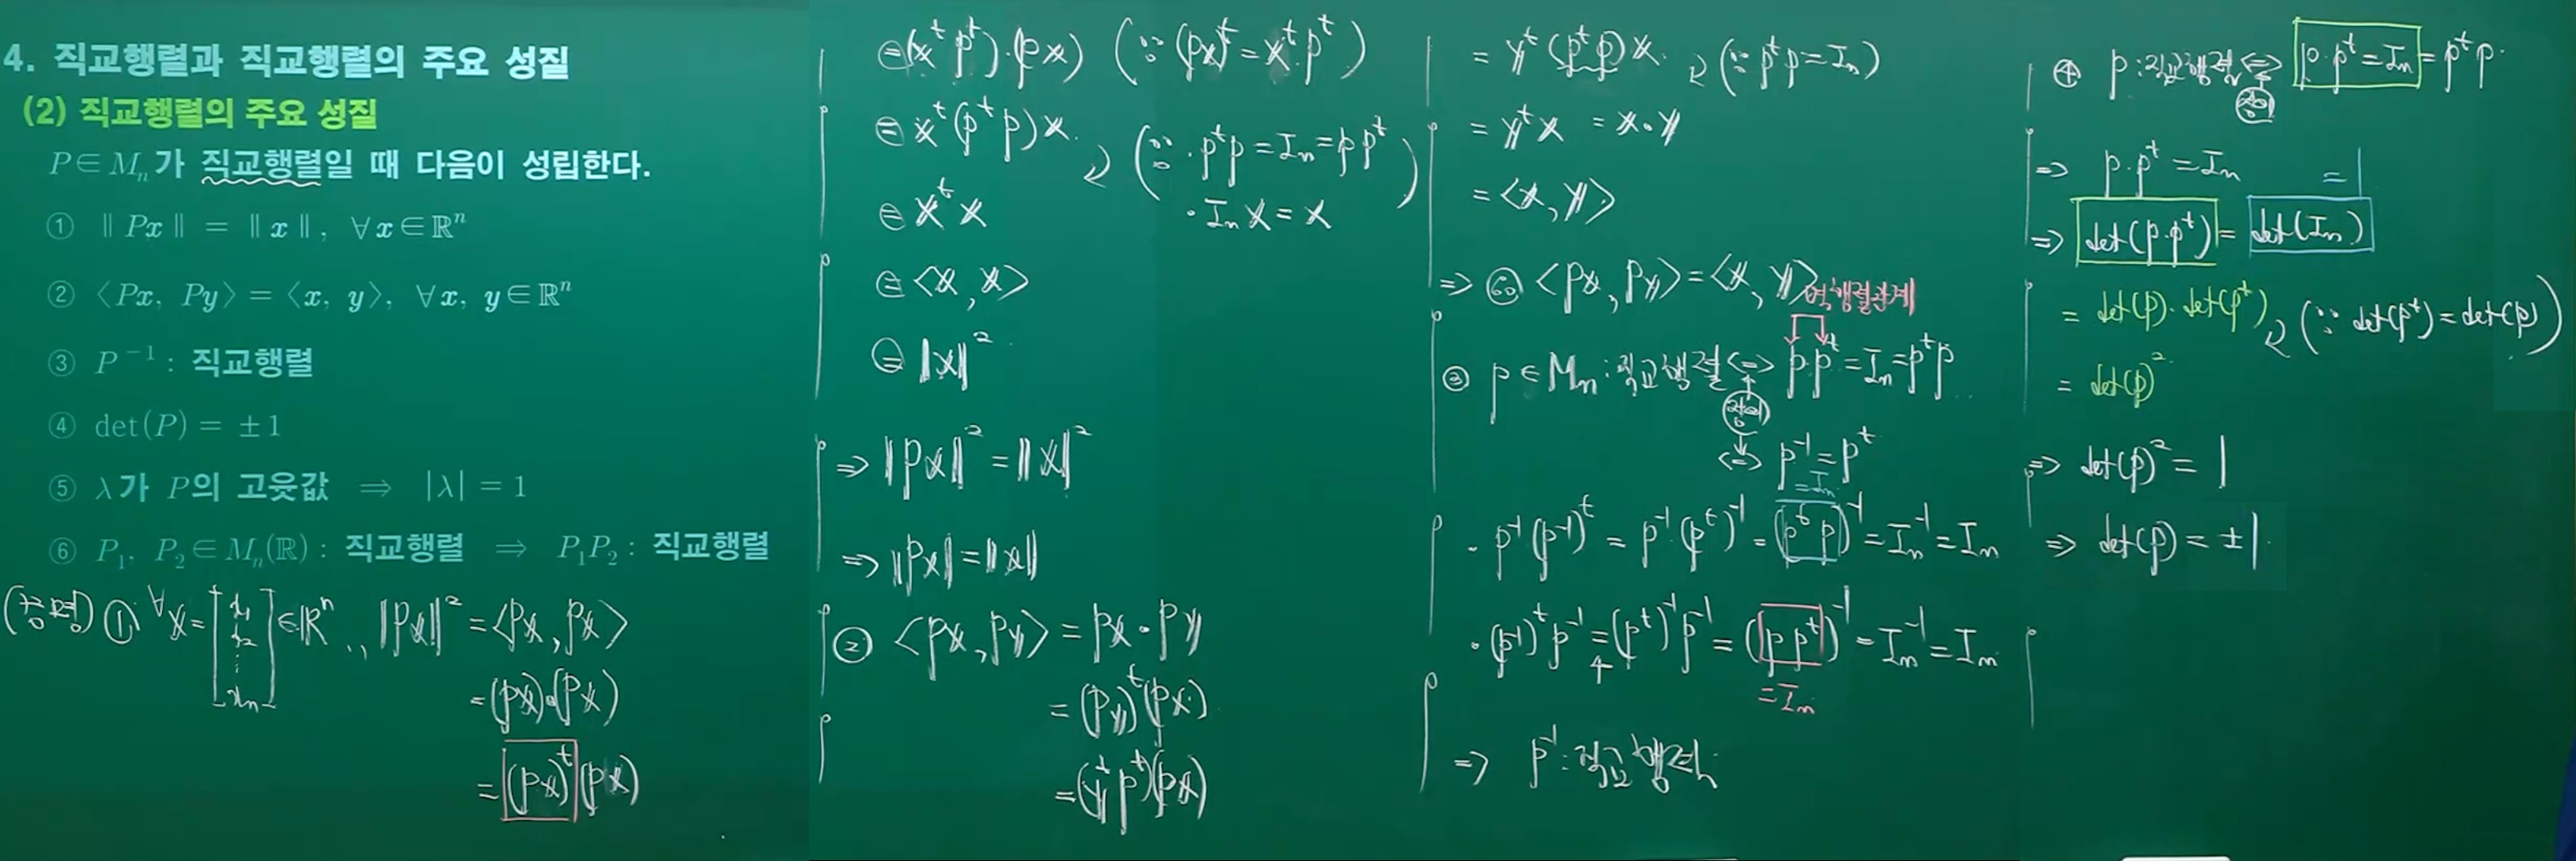 4. 직교행렬과 직교행렬의 주요 성질
(2) 직교행렬의 주요 성질
P∈Mₙ가 직교행렬일 때 다음이 성립한다.
① ‖Px‖ = ‖x‖, ∀x∈ℝⁿ
② ⟨Px, Py⟩ = ⟨x, y⟩, ∀x, y∈ℝⁿ
③ P⁻¹ : 직교행렬
④ det(P) = ±1
⑤ λ가 P의 고윳값 ⇒ |λ| = 1
⑥ P₁, P₂∈Mₙ(ℝ) : 직교행렬 ⇒ P₁P₂ : 직교행렬
(증명) ① ∀x = [x₁ x₂ ⋮ xₙ] ∈ℝⁿ, ‖Px‖² = ⟨Px, Px⟩
= (Px)·(Px)
= (Px)ᵗ(Px)
= (xᵗPᵗ)·(Px) (∵ (Px)ᵗ = xᵗPᵗ)
= xᵗ(PᵗP)x
(∵ ·PᵗP = Iₙ = PPᵗ
·Iₙx = x)
= xᵗx
= ⟨x, x⟩
= ‖x‖²
⇒ ‖Px‖² = ‖x‖²
⇒ ‖Px‖ = ‖x‖
② ⟨Px, Py⟩ = Px·Py
= (Py)ᵗ(Px)
= (yᵗPᵗ)(Px)
= yᵗ(PᵗP)x (∵ PᵗP = Iₙ)
= yᵗx = x·y
= ⟨x, y⟩
⇒ ⟨Px, Py⟩ = ⟨x, y⟩
역행렬관계
③ P∈Mₙ : 직교행렬 ⇔ PPᵗ = Iₙ = PᵗP
정의
⇔ P⁻¹ = Pᵗ
= Iₙ
· P⁻¹(P⁻¹)ᵗ = P⁻¹(Pᵗ)⁻¹ = (PᵗP)⁻¹ = Iₙ⁻¹ = Iₙ
· (P⁻¹)ᵗP⁻¹ = (Pᵗ)⁻¹P⁻¹ = (PPᵗ)⁻¹ = Iₙ⁻¹ = Iₙ
= Iₙ
⇒ P⁻¹ : 직교행렬
④ P : 직교행렬 ⇔ P·Pᵗ = Iₙ = PᵗP
정의
⇒ P·Pᵗ = Iₙ
= 1
⇒ det(P·Pᵗ) = det(Iₙ)
= det(P)·det(Pᵗ) (∵ det(Pᵗ) = det(P))
= det(P)²
⇒ det(P)² = 1
⇒ det(P) = ±1